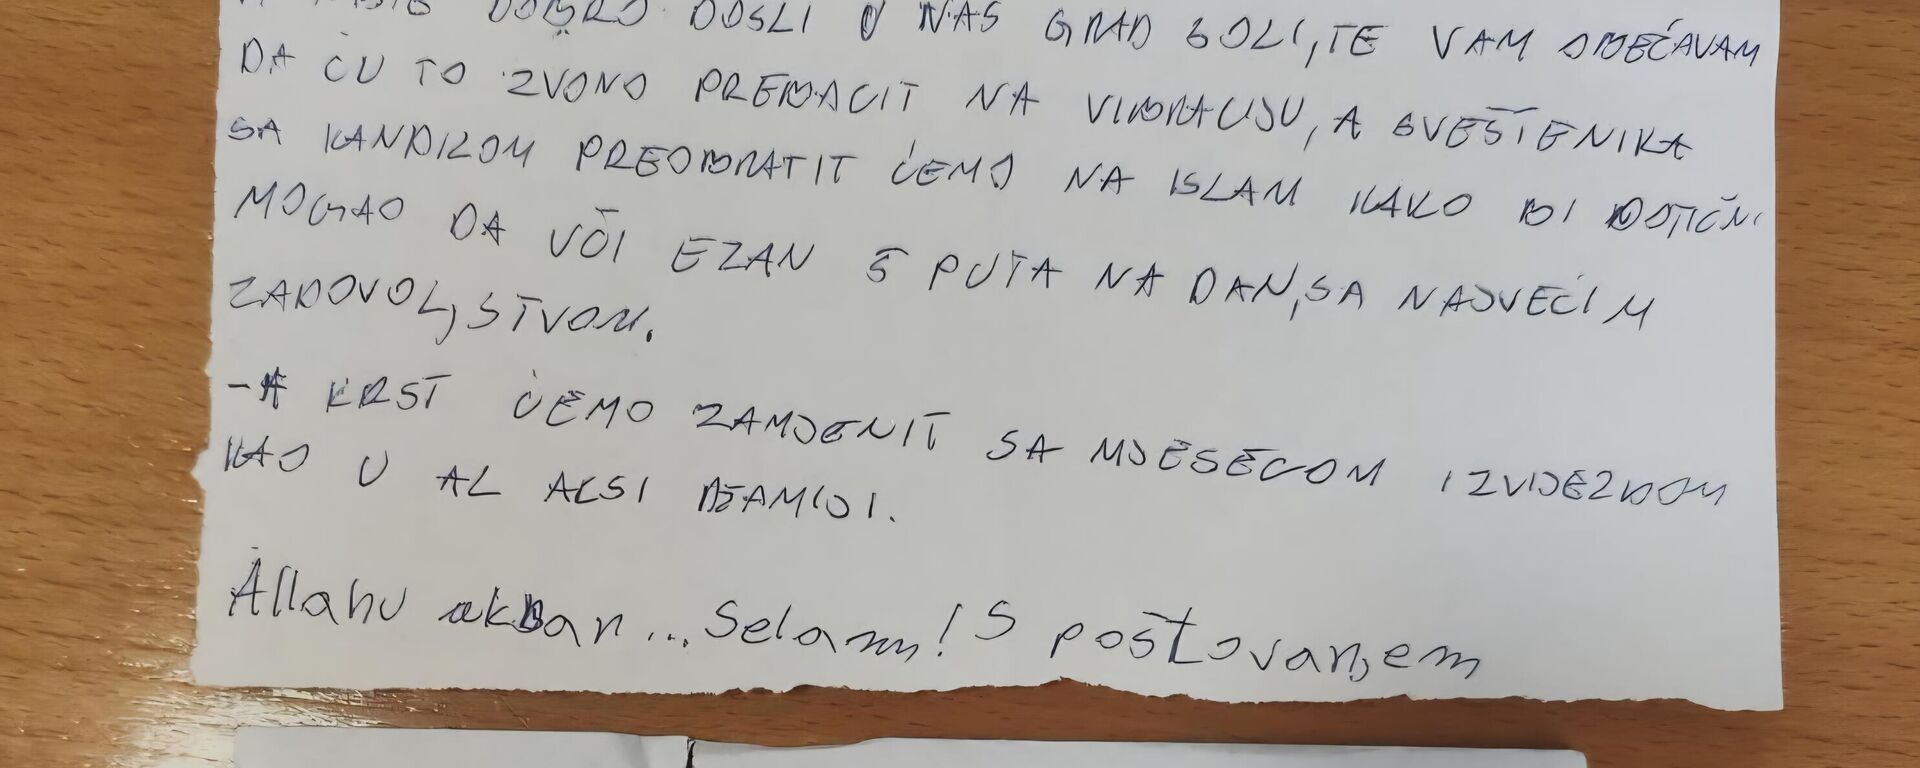 DOBRO DOŠLI U NAŠ GRAD SOLI, TE VAM OBEĆAVAM
DA ĆU TO ZVONO PREBACIT NA VIBRACIJU, A SVEŠTENIKA
SA KANDILOM PREOBRATIT ĆEMO NA ISLAM KAKO BI DOTIČNI
MOGAO DA UČI EZAN 5 PUTA NA DAN, SA NAJVEĆIM
ZADOVOLJSTVOM.
- A KRST ĆEMO ZAMJENIT SA MJESECOM I ZVIJEZDOM
KAO U AL AKSI DŽAMIJI.
Allahu akbar... Selam! S poštovanjem